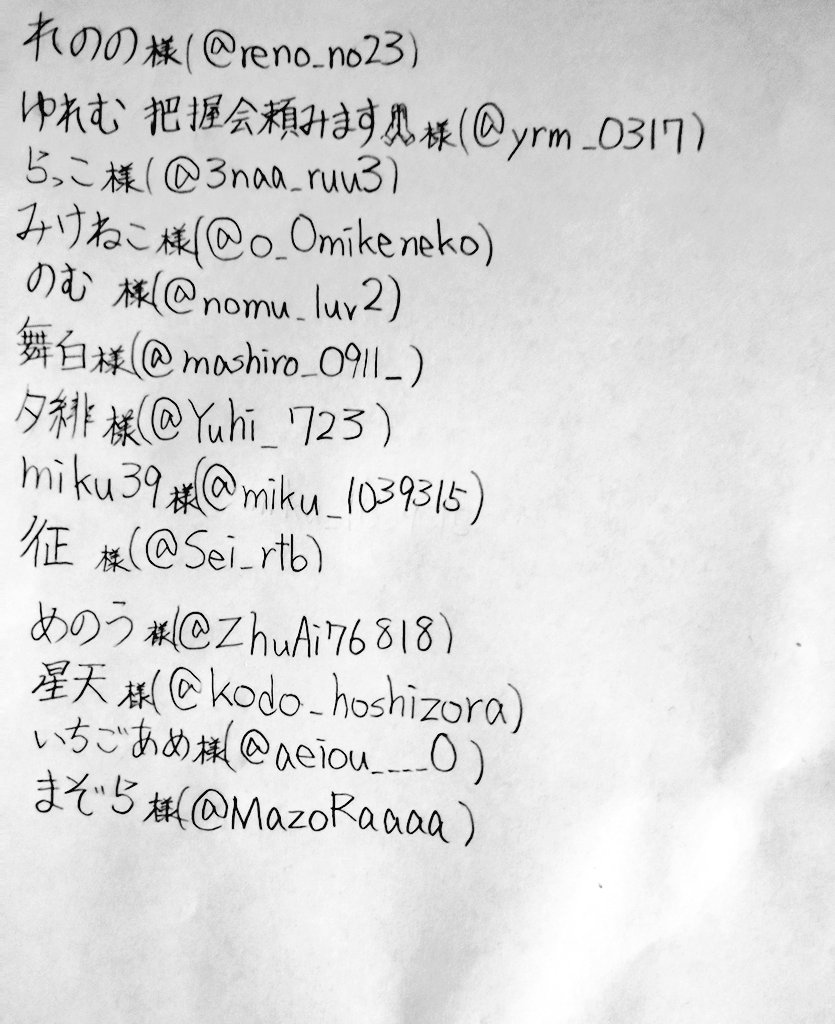 れのの様(@reno_no23)
ゆれむ 把握会頼みます🙏様(@yrm_0317)
らっこ様(@3naa_ruu3)
みけねこ様(@o_0mikeneko)
のむ 様(@nomu_luv2)
舞白様(@mashiro_0911_)
夕緋様(@Yuhi_723)
miku39様(@miku_1039315)
征 様(@Sei_rtb)
めのう様(@ZhuAi76818)
星天 様(@kodo_hoshizora)
いちごあめ様(@aeiou____0)
まぞら様(@MazoRaaaa)